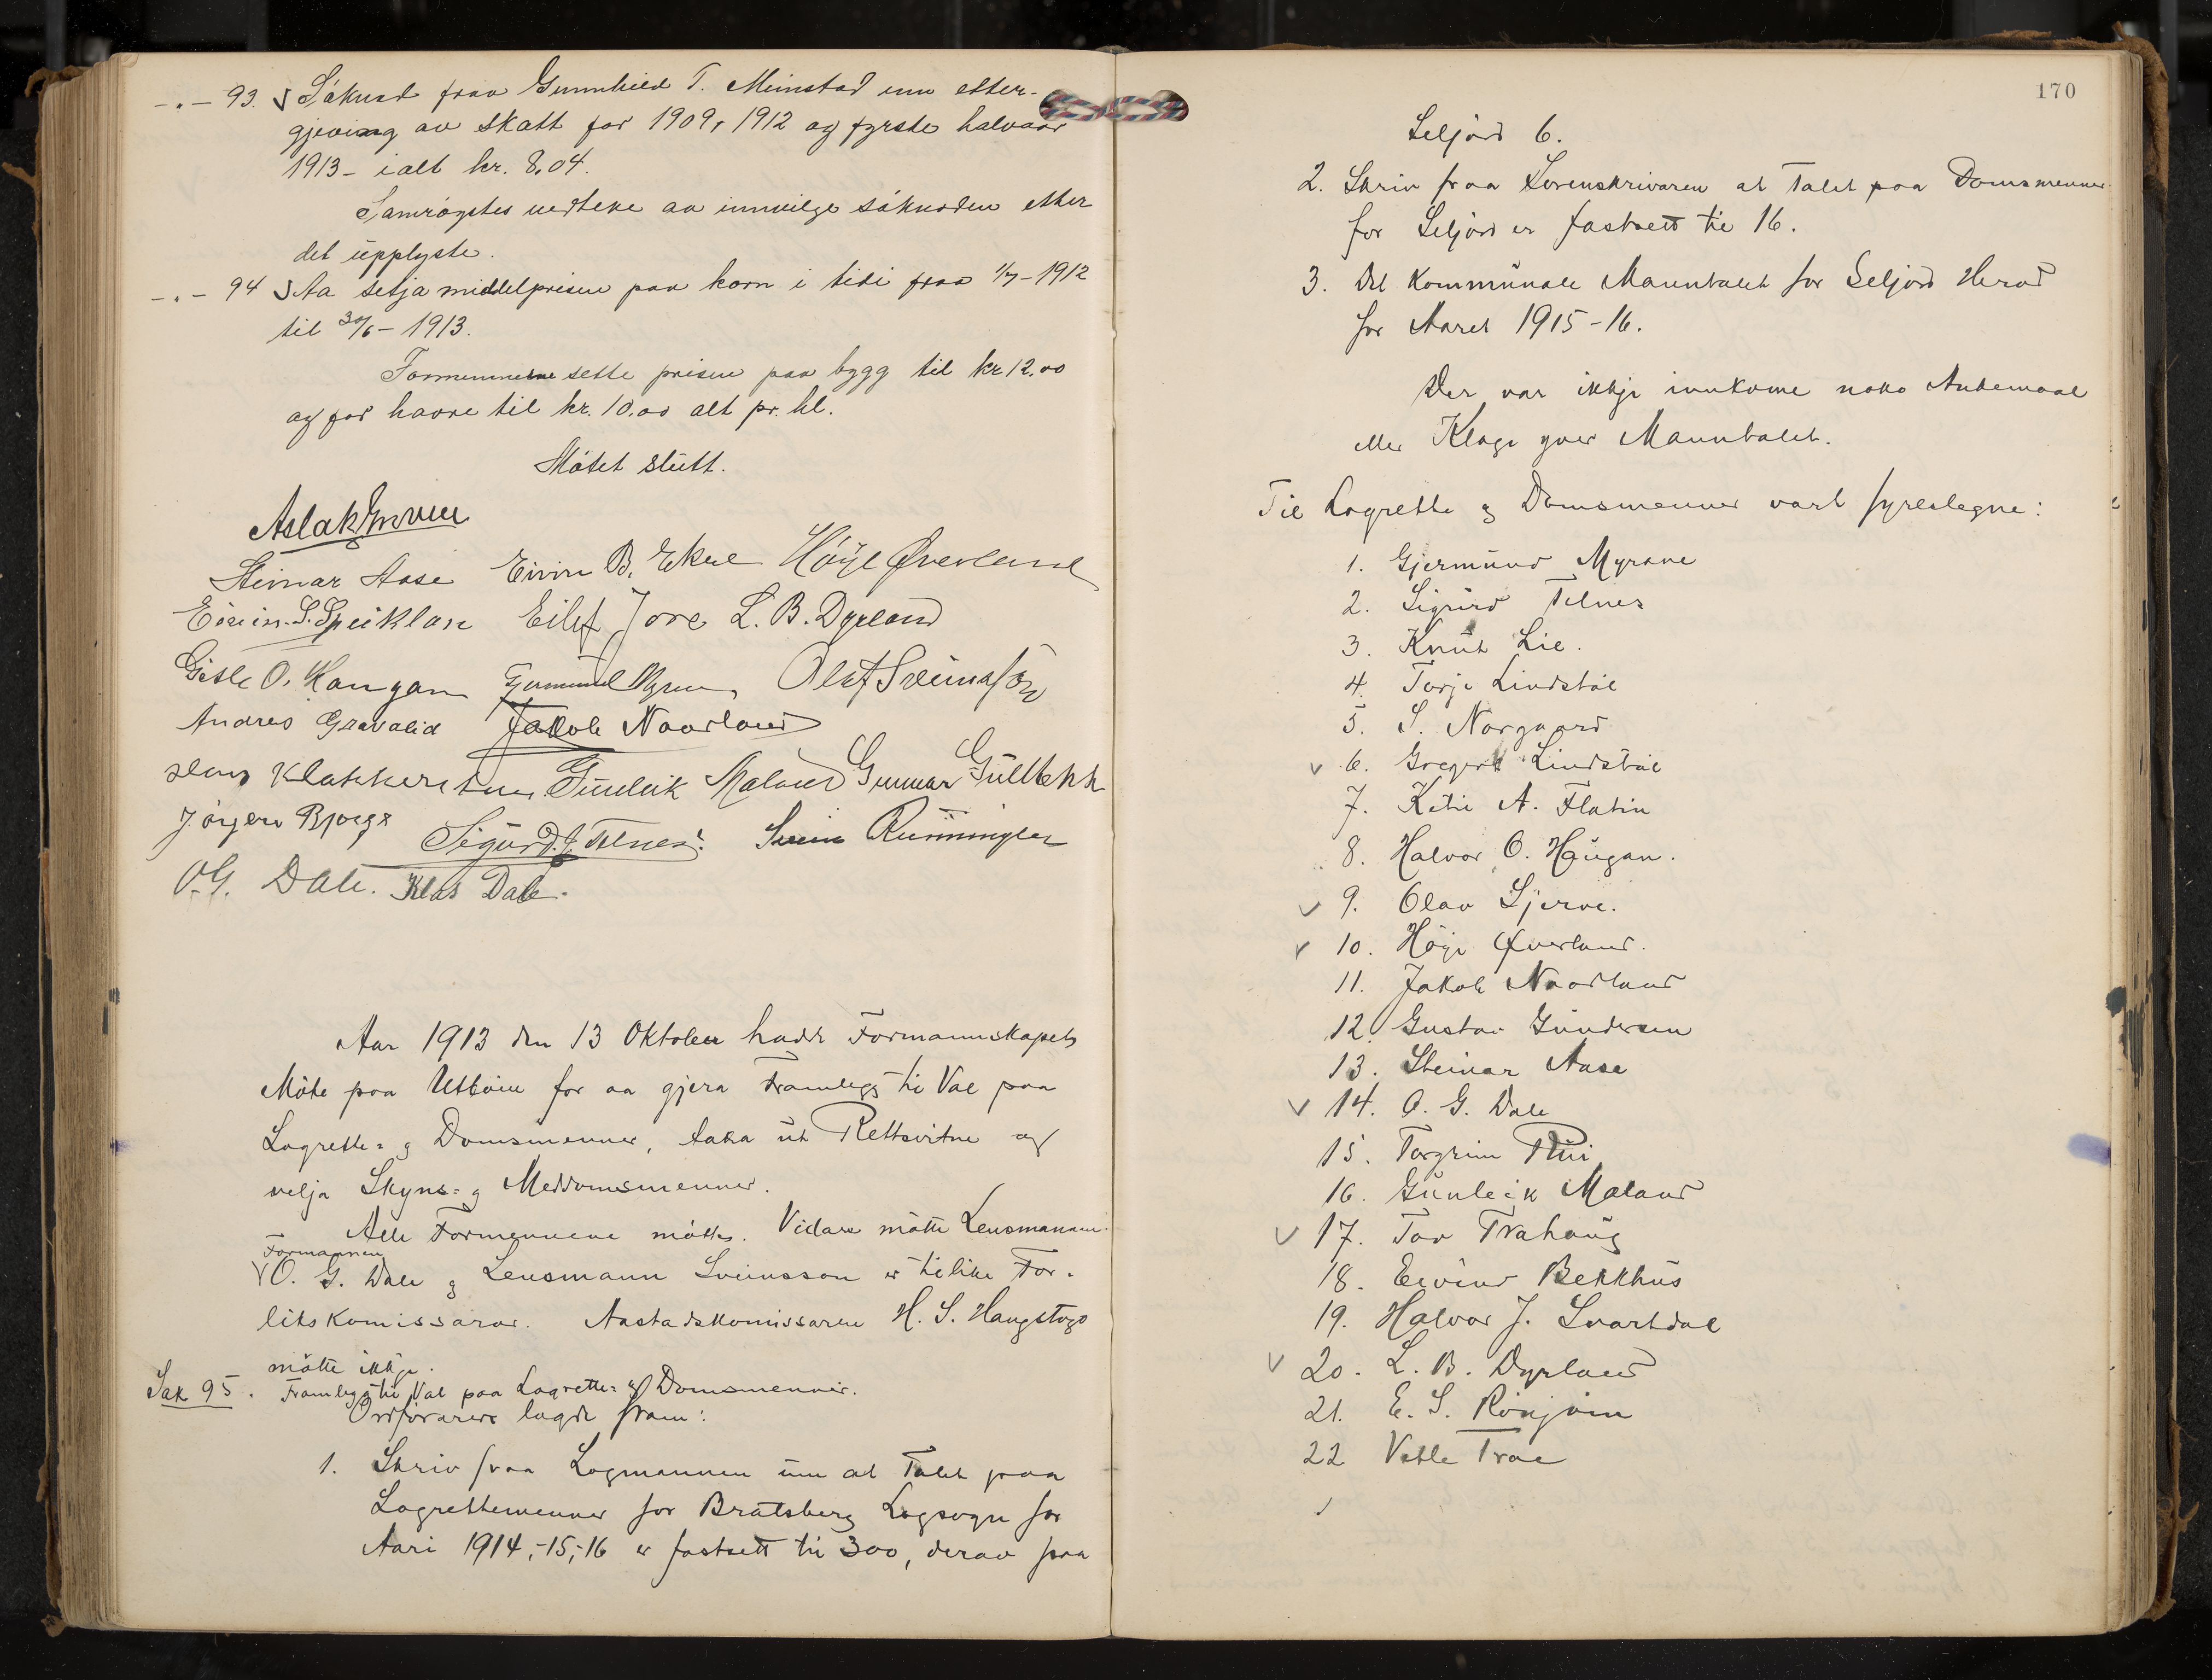 -"- 93. Söknad fraa Gunnhild T. Minstad um etter-
gjeving av skatt for 1909, 1912 og fyrste halvaar
1913 - ialt kr. 8,04.
Samrøystes vedteke aa innvilge söknaden etter
det upplyste.
-"- 94 Aa setja middelprisen paa korn i tidi fraa 1/7-1912
til 30/6-1913.
Formennerne sette prisen paa bygg til kr 12.00
og for havre til kr. 10.00 alt pr. hl.
Mötet slutt.
Aslak
Steinar Aase Eivin B. Høye Øverland
Eilef Jore L. B. Dyrland
Gisle O. Olaf Sveinsson
Andres Gravalid Jakob Naordland
Gunleik Maland Gunnar Gullbekk
Jörgen Bjorge Sigurd Telnes.
O.G. Dale. Klas Dale.
Aar 1913 den 13 Oktober hadde Formannskapet
Möte paa Utböen for aa gjera Framlegg til Val paa
Lagrette- og Domsmenner, taka ut Rettsvitne og
velja Skyns- og Meddomsmenner.
Alle Formennene mötte. Vidare mötte Lensmannen.
Formannen
O. G. Dale og Lensmann Sveinsson er tilike For-
likskomissarar. Aastadskomissaren H. S. Haugstogo
mötte ikkje.
Sak 95. Framlegg til Val paa Lagrette- og Domsmenner.
Ordföraren lagde fram:
1. Skriv fraa Lagmannen um at Talet paa
Lagrettemenner for Bratsberg Lagsogn for
Aari 1914,-15,-16 er fastsett til 300, derav fraa
170
Seljord 6.
2. Skriv fraa Sorenskrivaren at Talet paa Domsmenner
for Seljord er fastsett til 16.
3. Det Kommunale Manntalet for Seljord Herad
for Aaret 1915-16.
Der var ikkje innkome noko Ankemaal
eller Klage yver Manntalet.
Til Lagrette og Domsmenner vart fyreslegne:
1. Gjermund Myrane
2. Sigurd Telnes
3. Knut Lie.
4. Torje Lindstöl
5. S. Norgaard
6. Gregert Lindstöl
7. Ketil A. Flatin
8. Halvor O. Haugan.
9. Olav Sjerve.
10. Höye Øverland.
11. Jakob Naordland
12. Gustav Gundersen
13. Steinar Aase
14. O. G. Dale
15. Torgrim Rui
16. Gunleik Maland
17. Tov Trahaug
18. Eivind Bekkhus
19. Halvor J. Svartdal
20. L. B. Dyrland
21. E. S. Röijöin
22 Vetle Traae